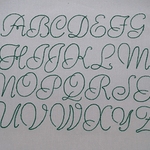 ABCDEFG
HIJKLM
NOPQRST
UVWXYZ